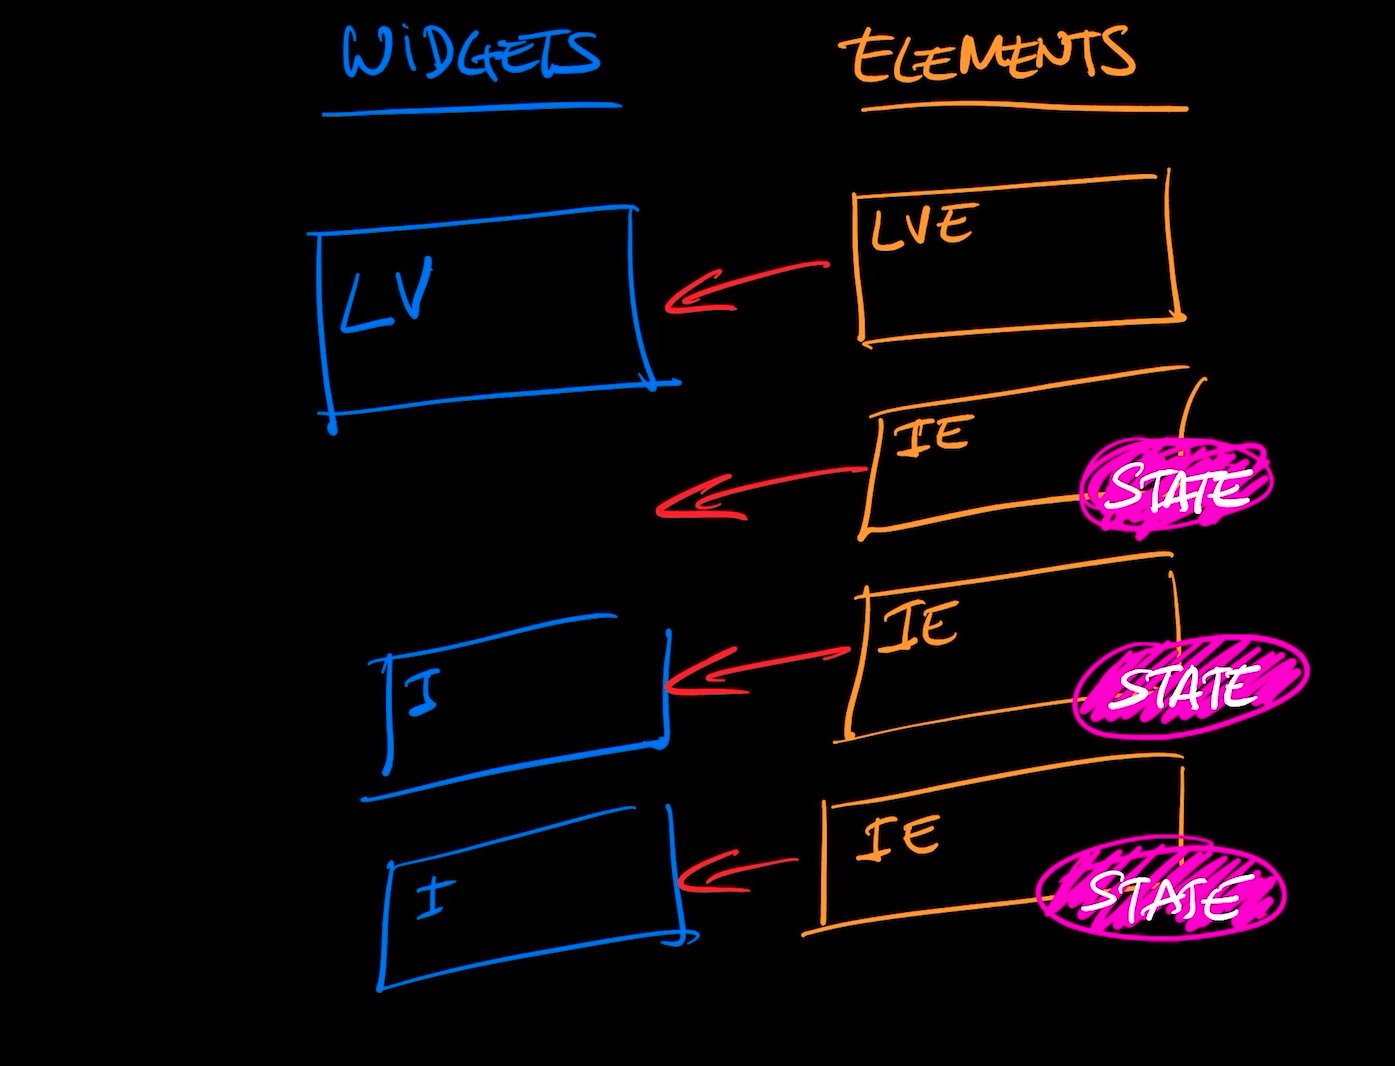 WIDGETS
ELEMENTS
LV
LVE
IE
STATE
I
IE
STATE
I
IE
STATE